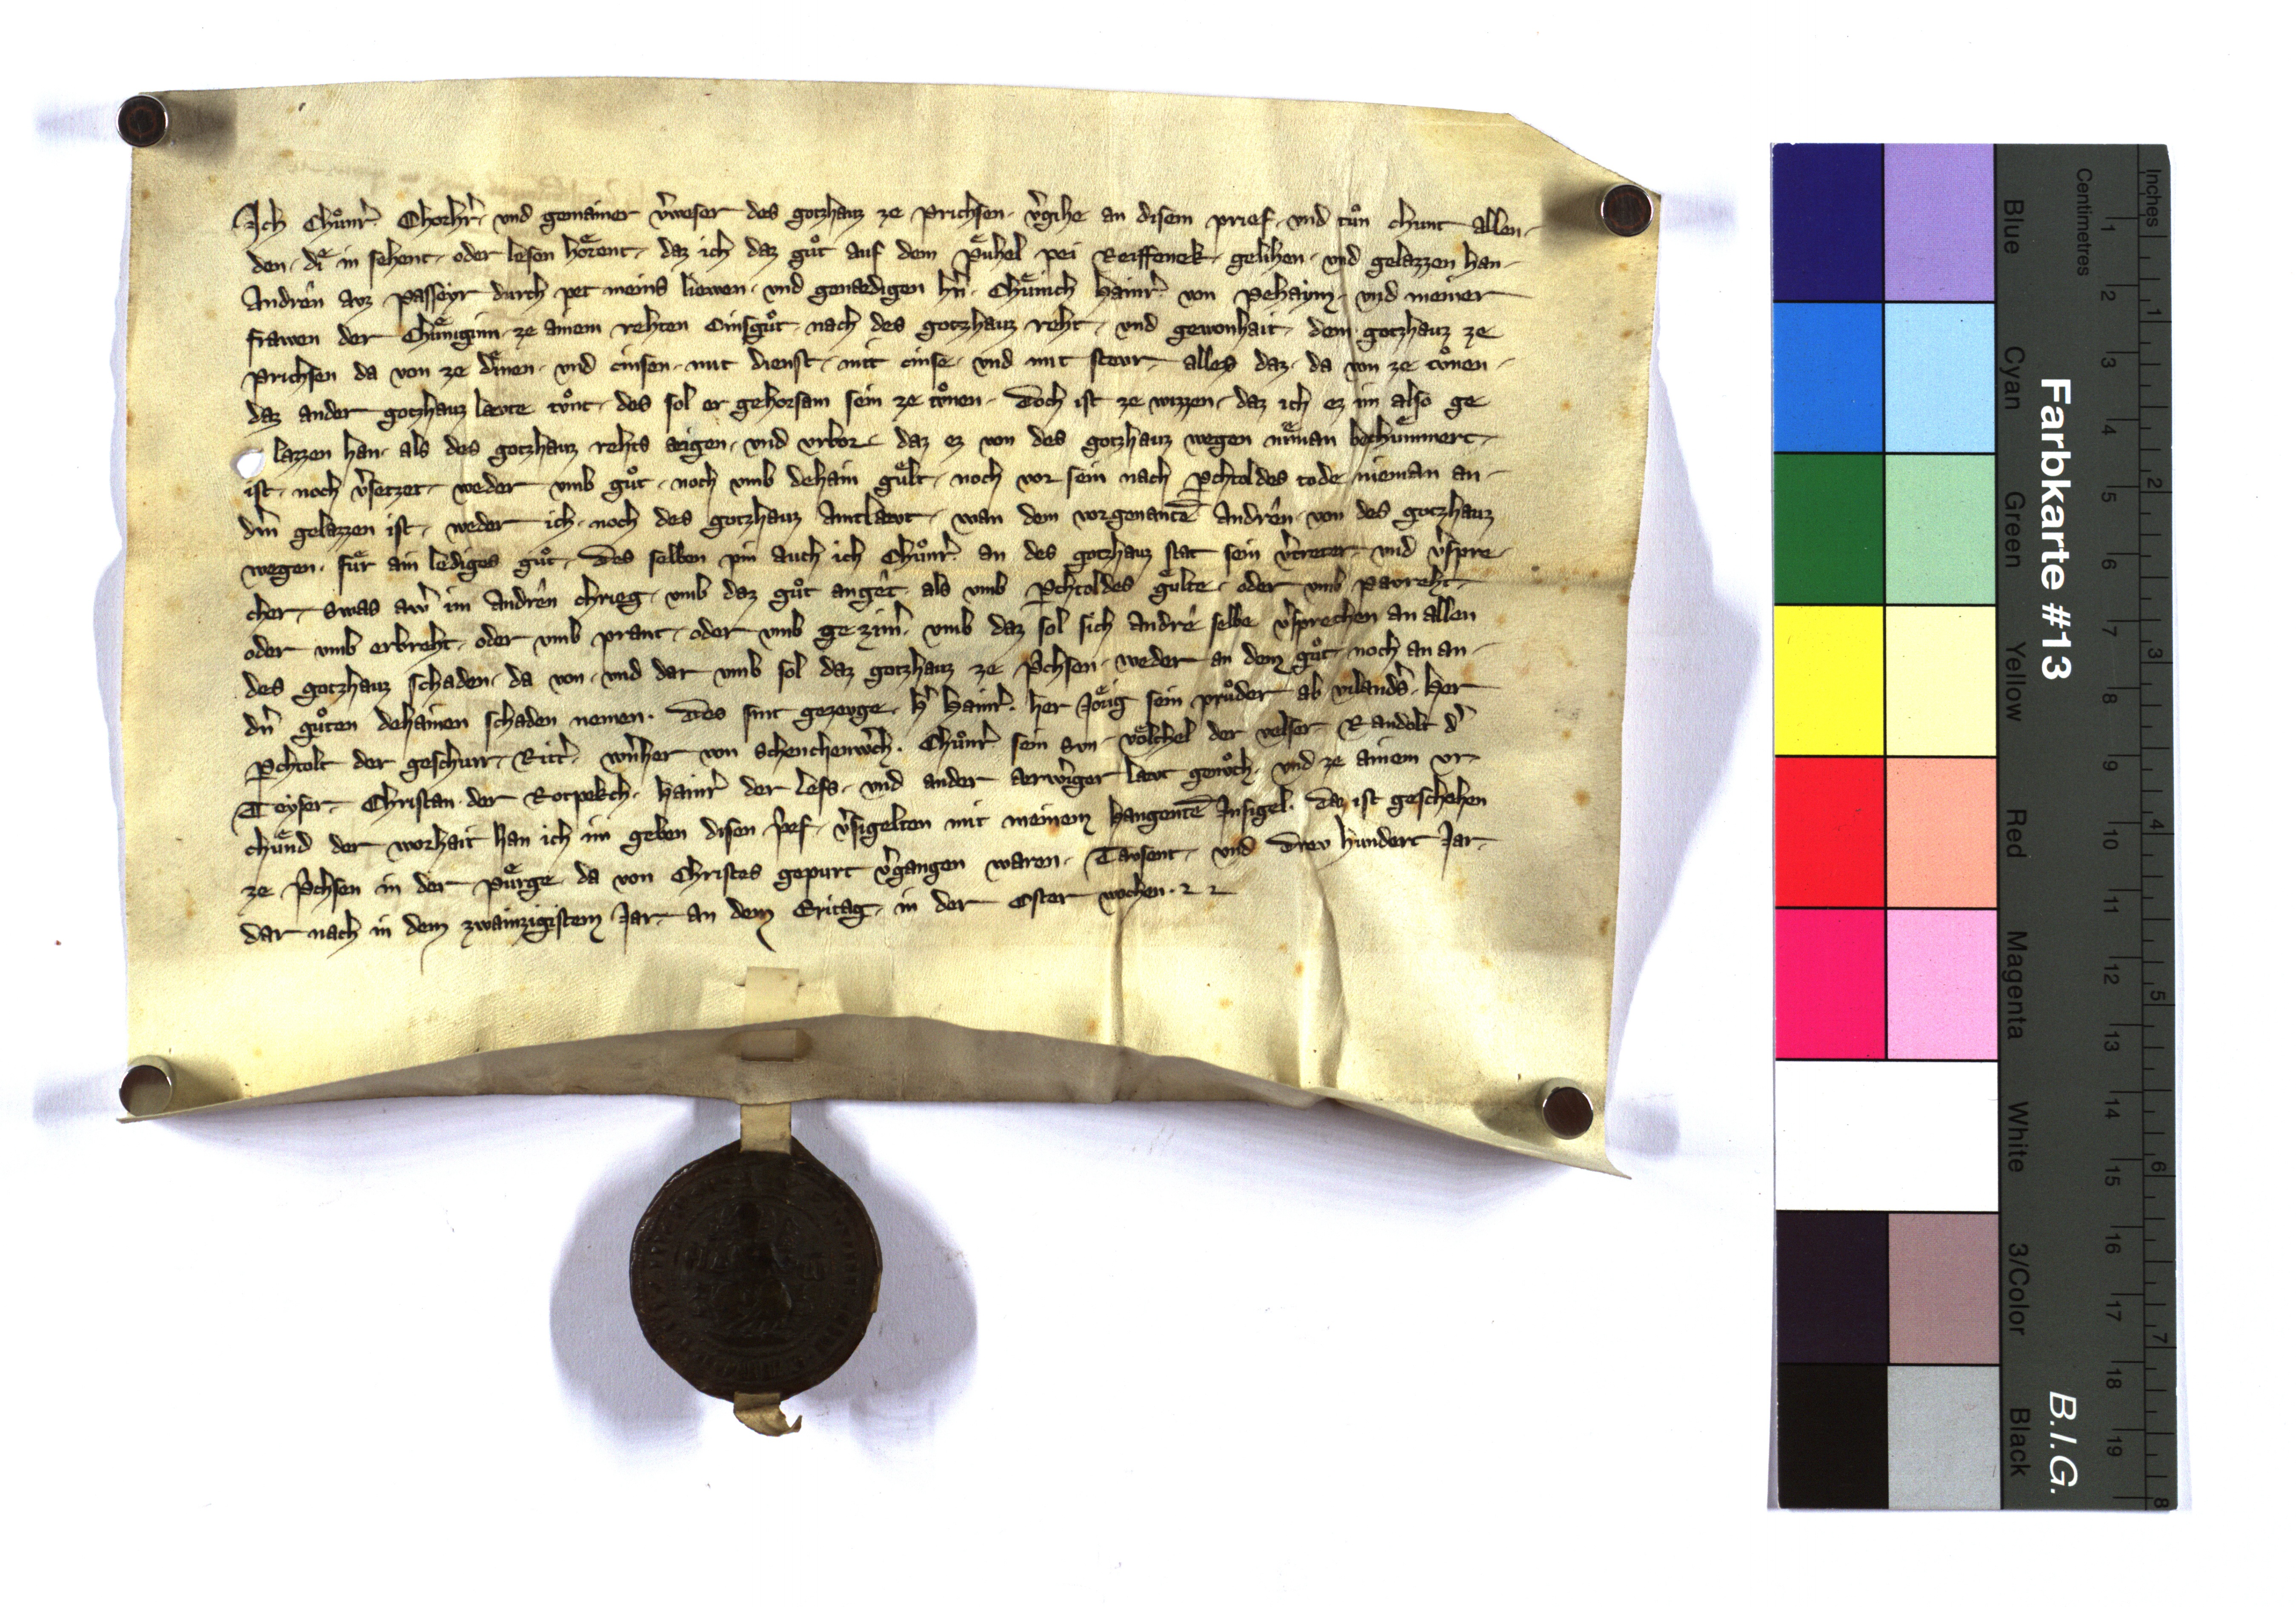 Ich Chůnr̄ Chorhr̄ vnd gemainer v̄weser des gotzhauz ze Prichsen v̄gihe an disem prief vnd tůn chunt allen
den di in sehent oder lesen hoͤrent daz ich daz gůt auf dem Puͤhel pei Reiffenek gelihen vnd gelazzen han
Andren auz Passeyr durch pet meins liewen vnd genædigen hn̄ Chuͤnich Hainr̄ von Pehaym vnd meiner
frawen der Chuͤniginn ze ainem rehten Cinsgůt nach des gotzhauz reht vnd gewonhait dem gotzhauz ze
Prichsen da von ze dinen vnd cinsen mit dienst mit cinse vnd mit stewr alles daz da von ze tůnen
daz ander gotzhauz læute tůnt des sol er gehorsam sein ze tůnen Doch ist ze wizzen daz ich ez im also ge
lazzen han als des gotzhauz rehts aigen vnd vrbor daz ez von des gotzhauz wegen niman bechuͤmmert
ist noch v̄setzet weder vmb gůt noch vmb dehain guͤlt noch vor sein nach P̱chtoldes tode nieman an
dm̄ gelazzen ist weder ich noch des gotzhauz Amtlæut wan dem vorgenantē Andren von des gotzhauz
wegen fuͤr ain lediges gůt Des selben pin auch ich Chůnr̄ an des gotzhauz stat sein v̄treter vnd v̄spre
cher swas aw̄ im Andren chrieg vmb daz gůt anget als vmb P̱chtoldes guͤlte oder vmb Paureht
oder vmb erbreht oder vmb prant oder vmb gezim̄ vmb daz sol sich Andre selbe v̄sprechen an allen
des gotzhauz schaden da von vnd dar vmb sol daz gotzhauz ze P̄chsen weder an dem gůt noch an an
dn̄ gůten dehainen schaden nemen Des sint gezeuge h̄ Hainr̄ her Joͤrig sein průder ab vilands̄ her
P̱chtolt der geschurr Ritt̄ wn̄her von Schenchenw̄ch Chůnr̄ sein sun voͤlchel der velser Randolt d̄
Teyser Christan der Rotpekch Hainr̄ der Lefs vnd ander aerw̄iger læut genůch vnd ze ainem vr
chuͤnd der worhait han ich im geben disen p̄ef v̄sigelten mit meinem hangentē Insigel Daz ist geschehen
ze P̄chsen in der Puͤrge da von Christes gepurt v̄gangen waren Tausent vnd Dreu hundert Jar
dar nach in dem zwainzigistem Jar an dem Eritag in der Oster wochen
Farbkarte #13
B.I.G.
Blue Cyan Green Yellow Red Magenta White 3/Color Black
Centimetres 1 2 3 4 5 6 7 8 9 10 11 12 13 14 15 16 17 18 19
Inches 1 2 3 4 5 6 7 8